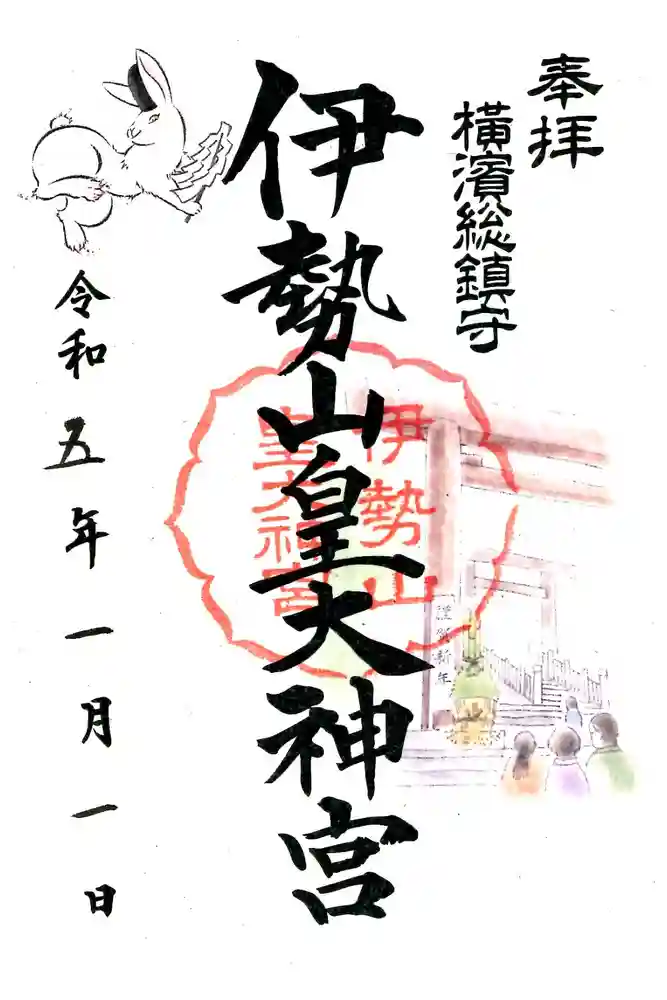 奉拝
横濱総鎮守
伊勢山皇大神宮
伊勢山
皇大神宮
謹賀新年
令和五年一月一日